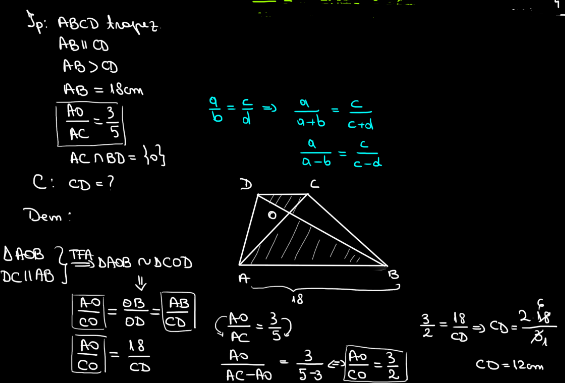 Ip: ABCD trapez
AB ∥ CD
AB > CD
AB = 18cm
AO/AC = 3/5
AC ∩ BD = {O}
C: CD = ?
Dem:
a/b = c/d ⇒ a/(a+b) = c/(c+d)
a/(a-b) = c/(c-d)
D C
O
A B
18
ΔAOB
DC ∥ AB } TFA ⇒ ΔAOB ~ ΔCOD
⇓
AO/CO = OB/OD = AB/CD
AO/CO = 18/CD
AO/AC = 3/5
AO/(AC-AO) = 3/(5-3) ⇔ AO/CO = 3/2
3/2 = 18/CD ⇒ CD = 2 · 18 6/3 1
CD = 12cm